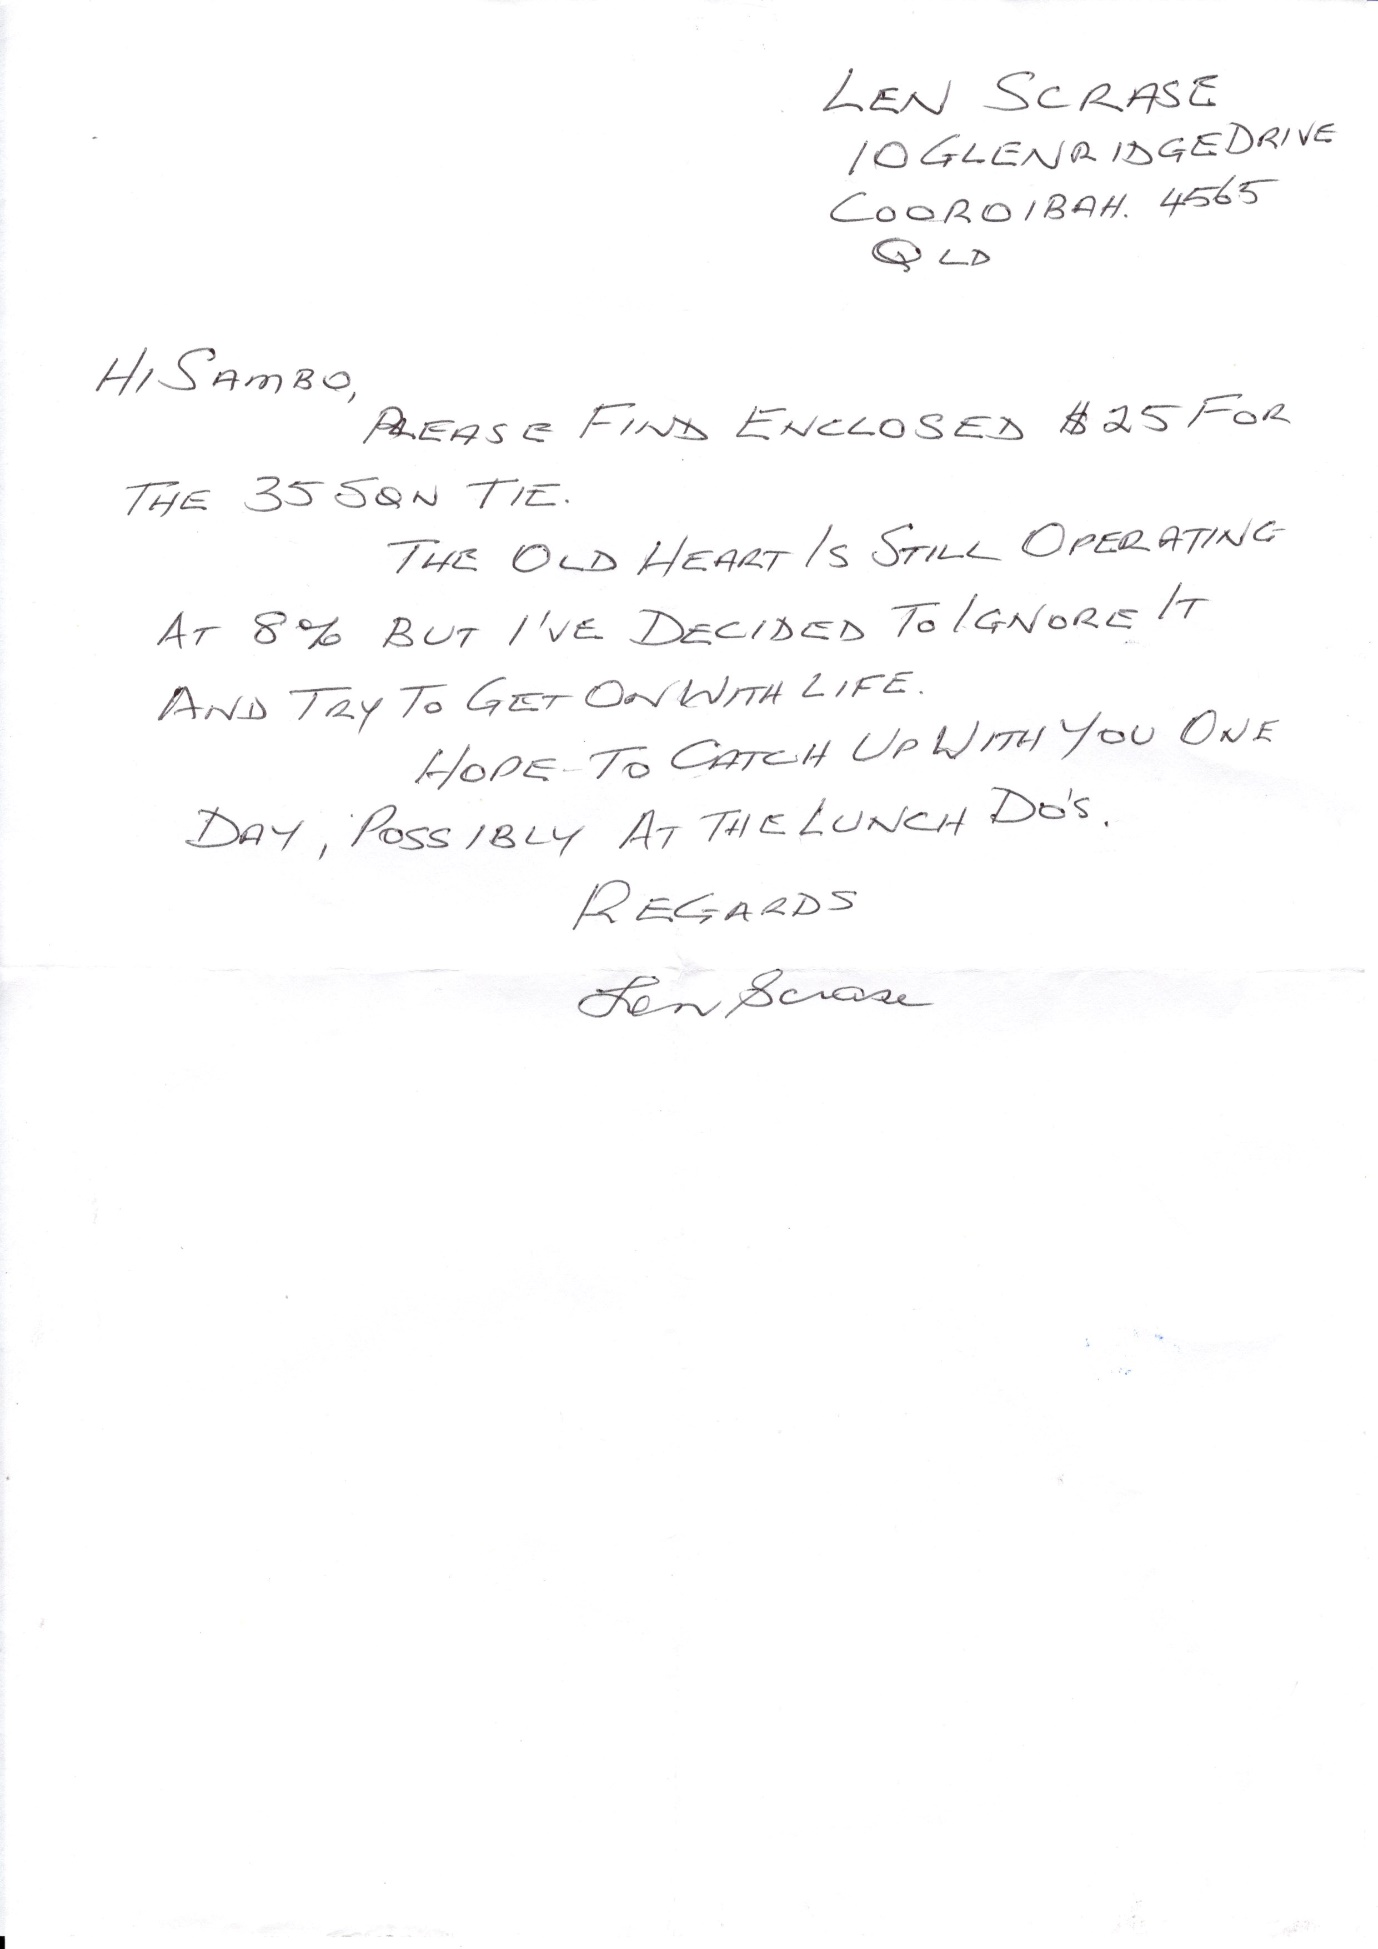 LEN SCRASE
10 GLENRIDGE DRIVE
COOROIBAH. 4565
QLD
HI SAMBO,
PLEASE FIND ENCLOSED $25 FOR
THE 35 SQN TIE.
THE OLD HEART IS STILL OPERATING
AT 8% BUT I'VE DECIDED TO IGNORE IT
AND TRY TO GET ON WITH LIFE.
HOPE TO CATCH UP WITH YOU ONE
DAY, POSSIBLY AT THE LUNCH DO'S.
REGARDS
Len Scrase